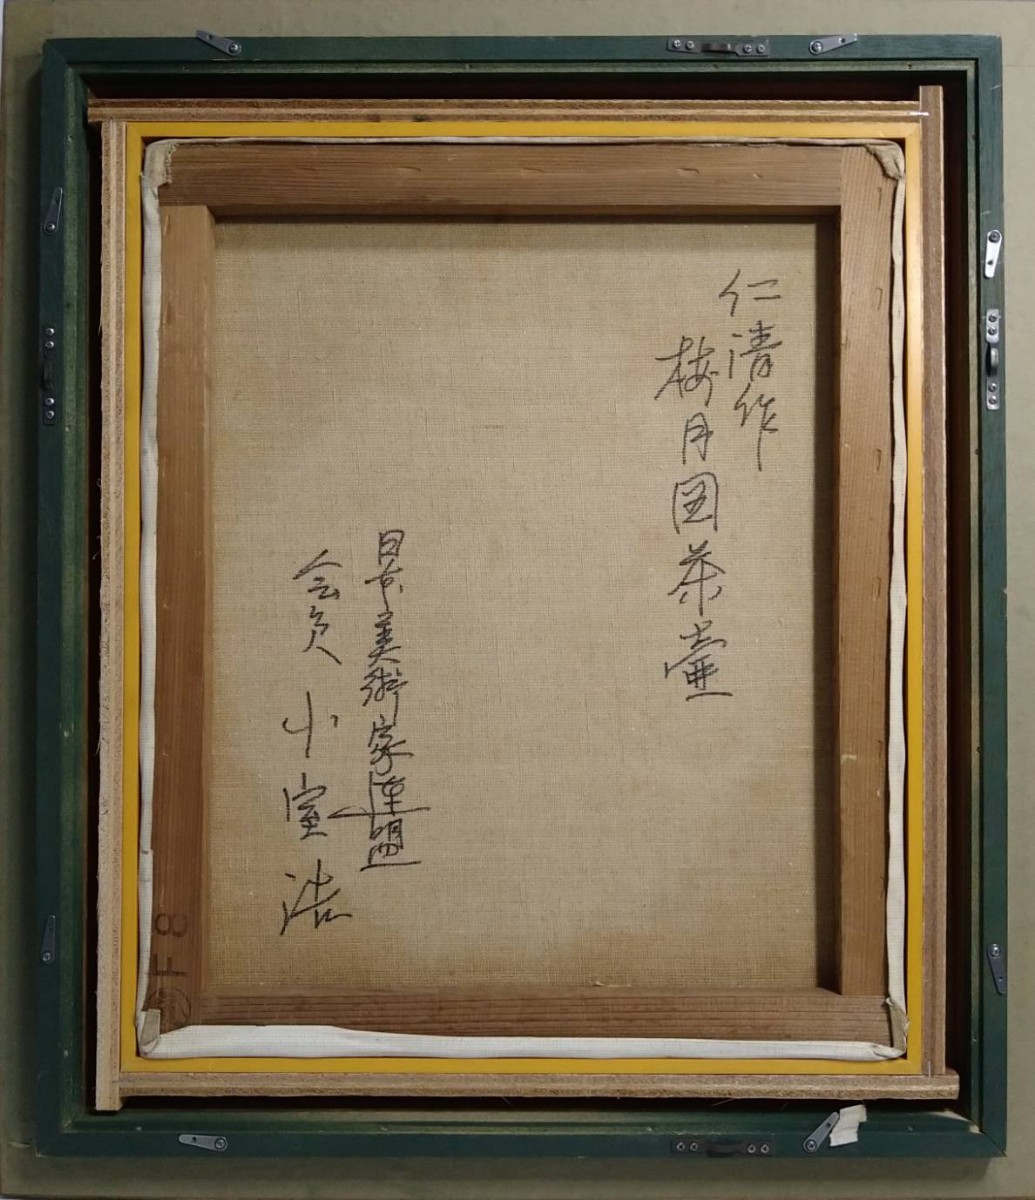 仁清作
梅月図茶壷
日本美術家連盟
会員 小室 浩
F8